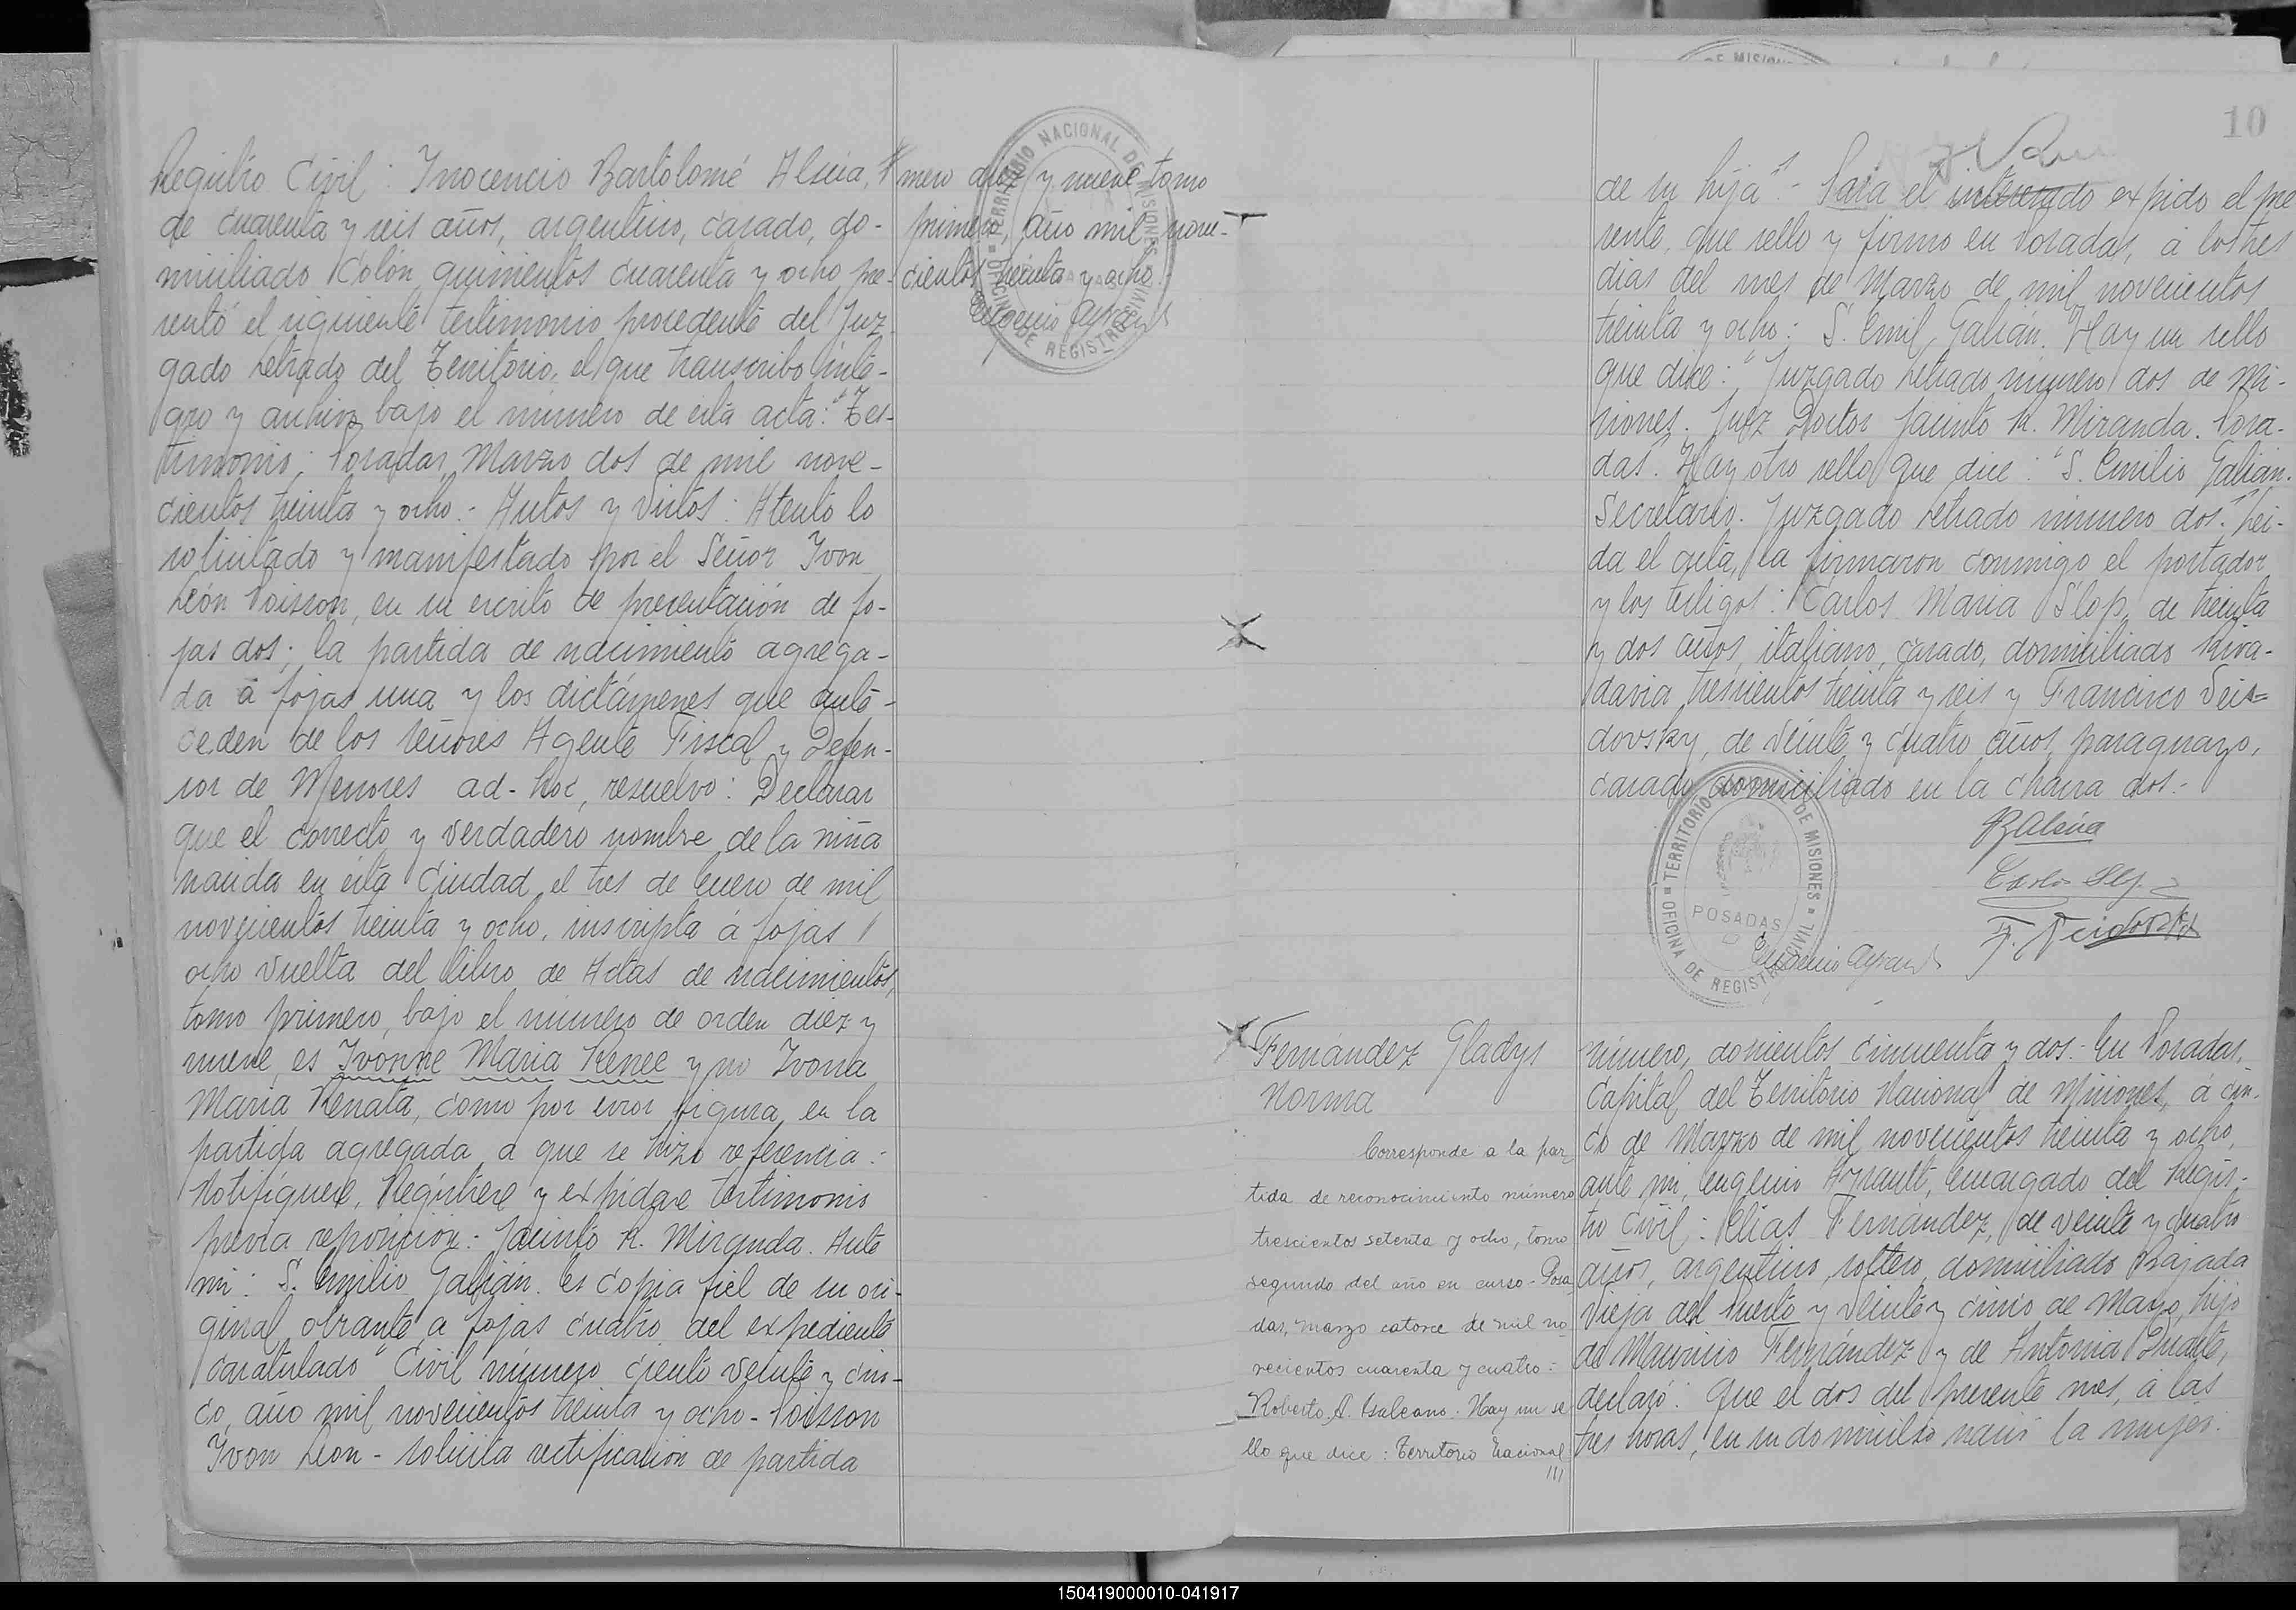 Registro Civil: Inocencio Bartolomé Alsina,
de cuarenta y seis años, argentino, casado, do-
miciliado Colón quinientos cuarenta y ocho, pre-
sentó el siguiente testimonio procedente del Juz-
gado Letrado del Territorio, el que transcribo ínte-
gro y archivo bajo el número de esta acta: "Tes-
timonio: Posadas, Marzo dos de mil nove-
cientos treinta y ocho.- Autos y Vistos: Atento lo
solicitado y manifestado por el Señor Ivon
León Poisson, en su escrito de presentación de fo-
jas dos; la partida de nacimiento agrega-
da á fojas una y los dictámenes que ante-
ceden de los señores Agente Fiscal y Defen-
sor de Menores ad-hoc, resuelvo: Declarar
que el correcto y verdadero nombre de la niña
nacida en esta Ciudad, el tres de Enero de mil
novecientos treinta y ocho, inscripta á fojas
ocho vuelta del libro de Actas de nacimientos,
tomo primero, bajo el número de orden diez y
nueve, es Ivónne Maria Renee y no Ivona
Maria Renata, como por error figura en la
partida agregada a que se hizo referencia:
Notifíquese, Regístrese y expídase testimonio
previa reposición:- Jacinto R. Miranda. Ante
mi: S. Emilio Galián. Es copia fiel de su ori-
ginal obrante a fojas cuatro del expediente
caratulado "Civil número ciento veinte y cin-
co, año mil novecientos treinta y ocho - Poisson
Ivon Leon - solicita rectificación de partida
mero diez y nueve tomo
primero, año mil nove-
cientos treinta y ocho.-
Eugenio Ayrault
TERRITORIO NACIONAL DE MISIONES
OFICINA DE REGISTRO CIVIL
DE MISIONES
10
de su hija".- Para el interesado expido el pre
sente, que sello y firmo en Posadas, á los tres
dias del mes de Marzo de mil novecientos
treinta y ocho: S. Emil. Galián. "Hay un sello
que dice: "Juzgado Letrado número dos de Mi-
siones. Juez Doctor Jacinto R. Miranda. Posa-
das". Hay otro sello que dice: "S. Emilio Galián.
Secretario. Juzgado Letrado número dos." Leí-
da el acta, la firmaron conmigo el portador
y los testigos: Carlos Maria Slop, de treinta
y dos años, italiano, casado, domiciliado Riva-
davia trescientos treinta y seis y Francisco Veis=
dovsky, de veinte y cuatro años, paraguayo,
casado, domiciliado en la chacra dos.-
TERRITORIO NACIONAL DE MISIONES
POSADAS
OFICINA DE REGISTRO CIVIL
Eugenio Ayrault
Fernández Gladys
Norma
Corresponde a la par
tida de reconocimiento número
trescientos setenta y ocho, tomo
segundo del año en curso - Posa
das, marzo catorce de mil no
vecientos cuarenta y cuatro:-
Roberto A. Hay un se
llo que dice: Territorio nacional
///
número, doscientos cincuenta y dos.- En Posadas,
Capital del Territorio Nacional de Misiones, á cin-
co de Marzo de mil novecientos treinta y ocho,
ante mi, Eugenio Ayrault, Encargado del Regis-
tro Civil: Elías Fernández, de veinte y cuatro
años, argentino, soltero, domiciliado Bajada
Vieja del Puerto y Veinte y cinco de Mayo, hijo
de Mauricio Fernández y de Antonia Duarte,
declaró: Que el dos del presente mes, á las
tres horas, en su domicilio nació la mujer.
150419000010-041917